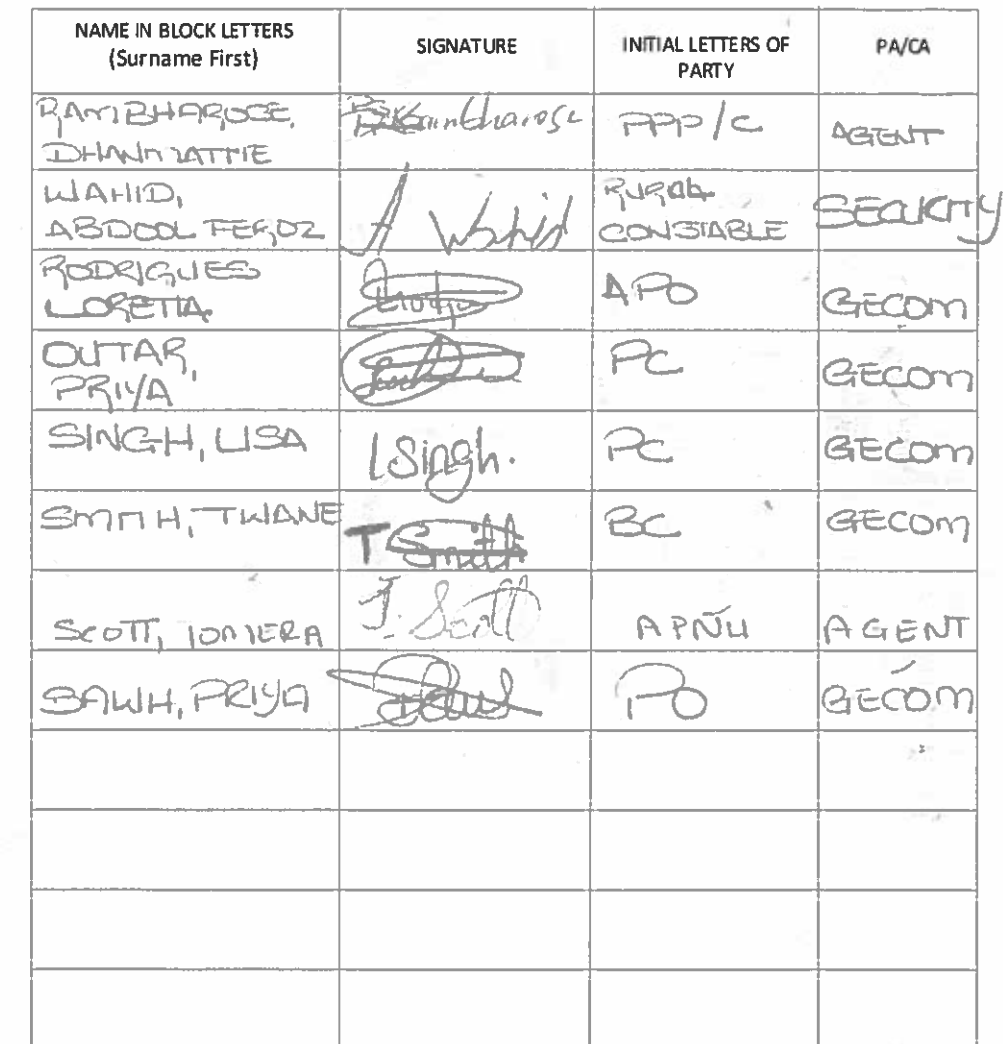 NAME IN BLOCK LETTERS
(Surname First)
SIGNATURE
INITIAL LETTERS OF
PARTY
PA/CA
RAMBHAROSE,
DHANMATTIE
Rambharose
PPP/C
AGENT
WAHID,
ABDOOL FEROZ
A Wahid
RURAL
CONSTABLE
SECURITY
RODRIGUES
LORETTA
APO
GECOM
OUTAR,
PRIYA
PC
GECOM
SINGH, LISA
LSingh.
PC
GECOM
SMITH, TWANE
T Smith
BC
GECOM
SCOTT,
J. Scott
APNU
AGENT
SAWH, PRIYA
PO
GECOM